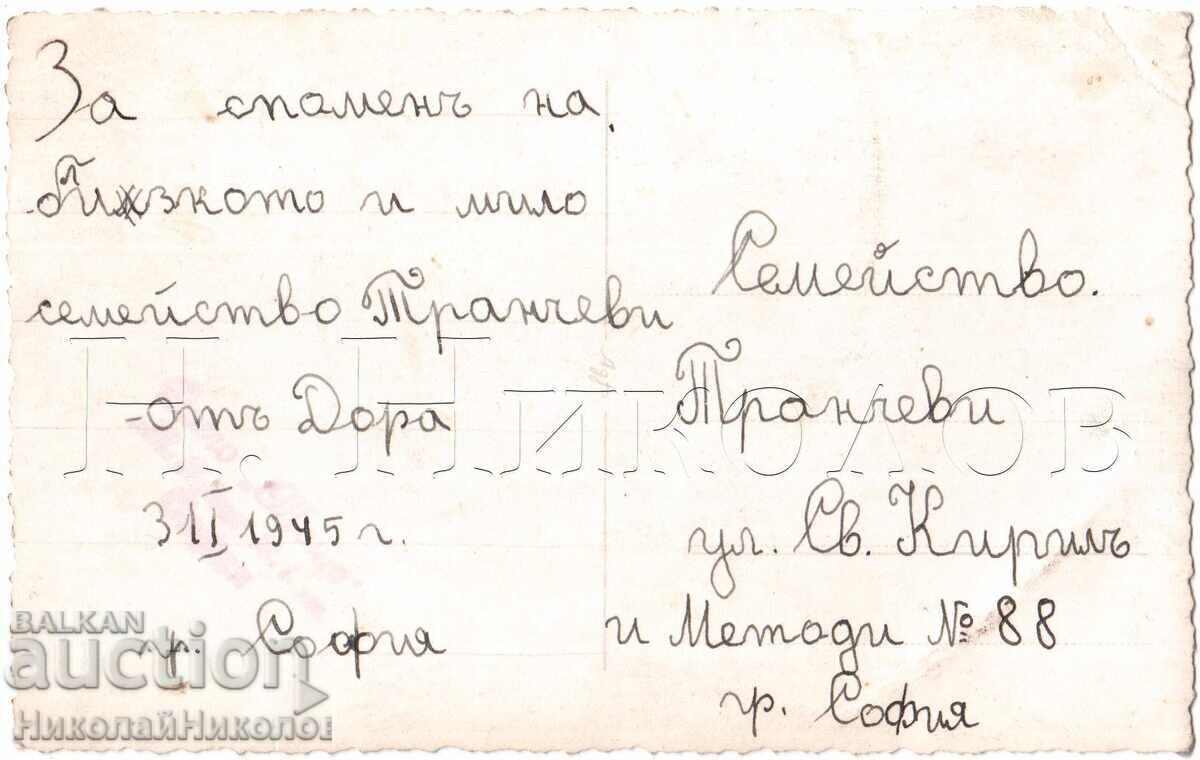 За споменъ на
близкото и мило
семейство Транчеви
-отъ Дора
3 II 1945 г.
гр. София
Семейство.
Транчеви
ул. Св. Кирилъ
и Методи № 88
гр. София
Н. Николов
BALKAN
auction
НиколайНиколов